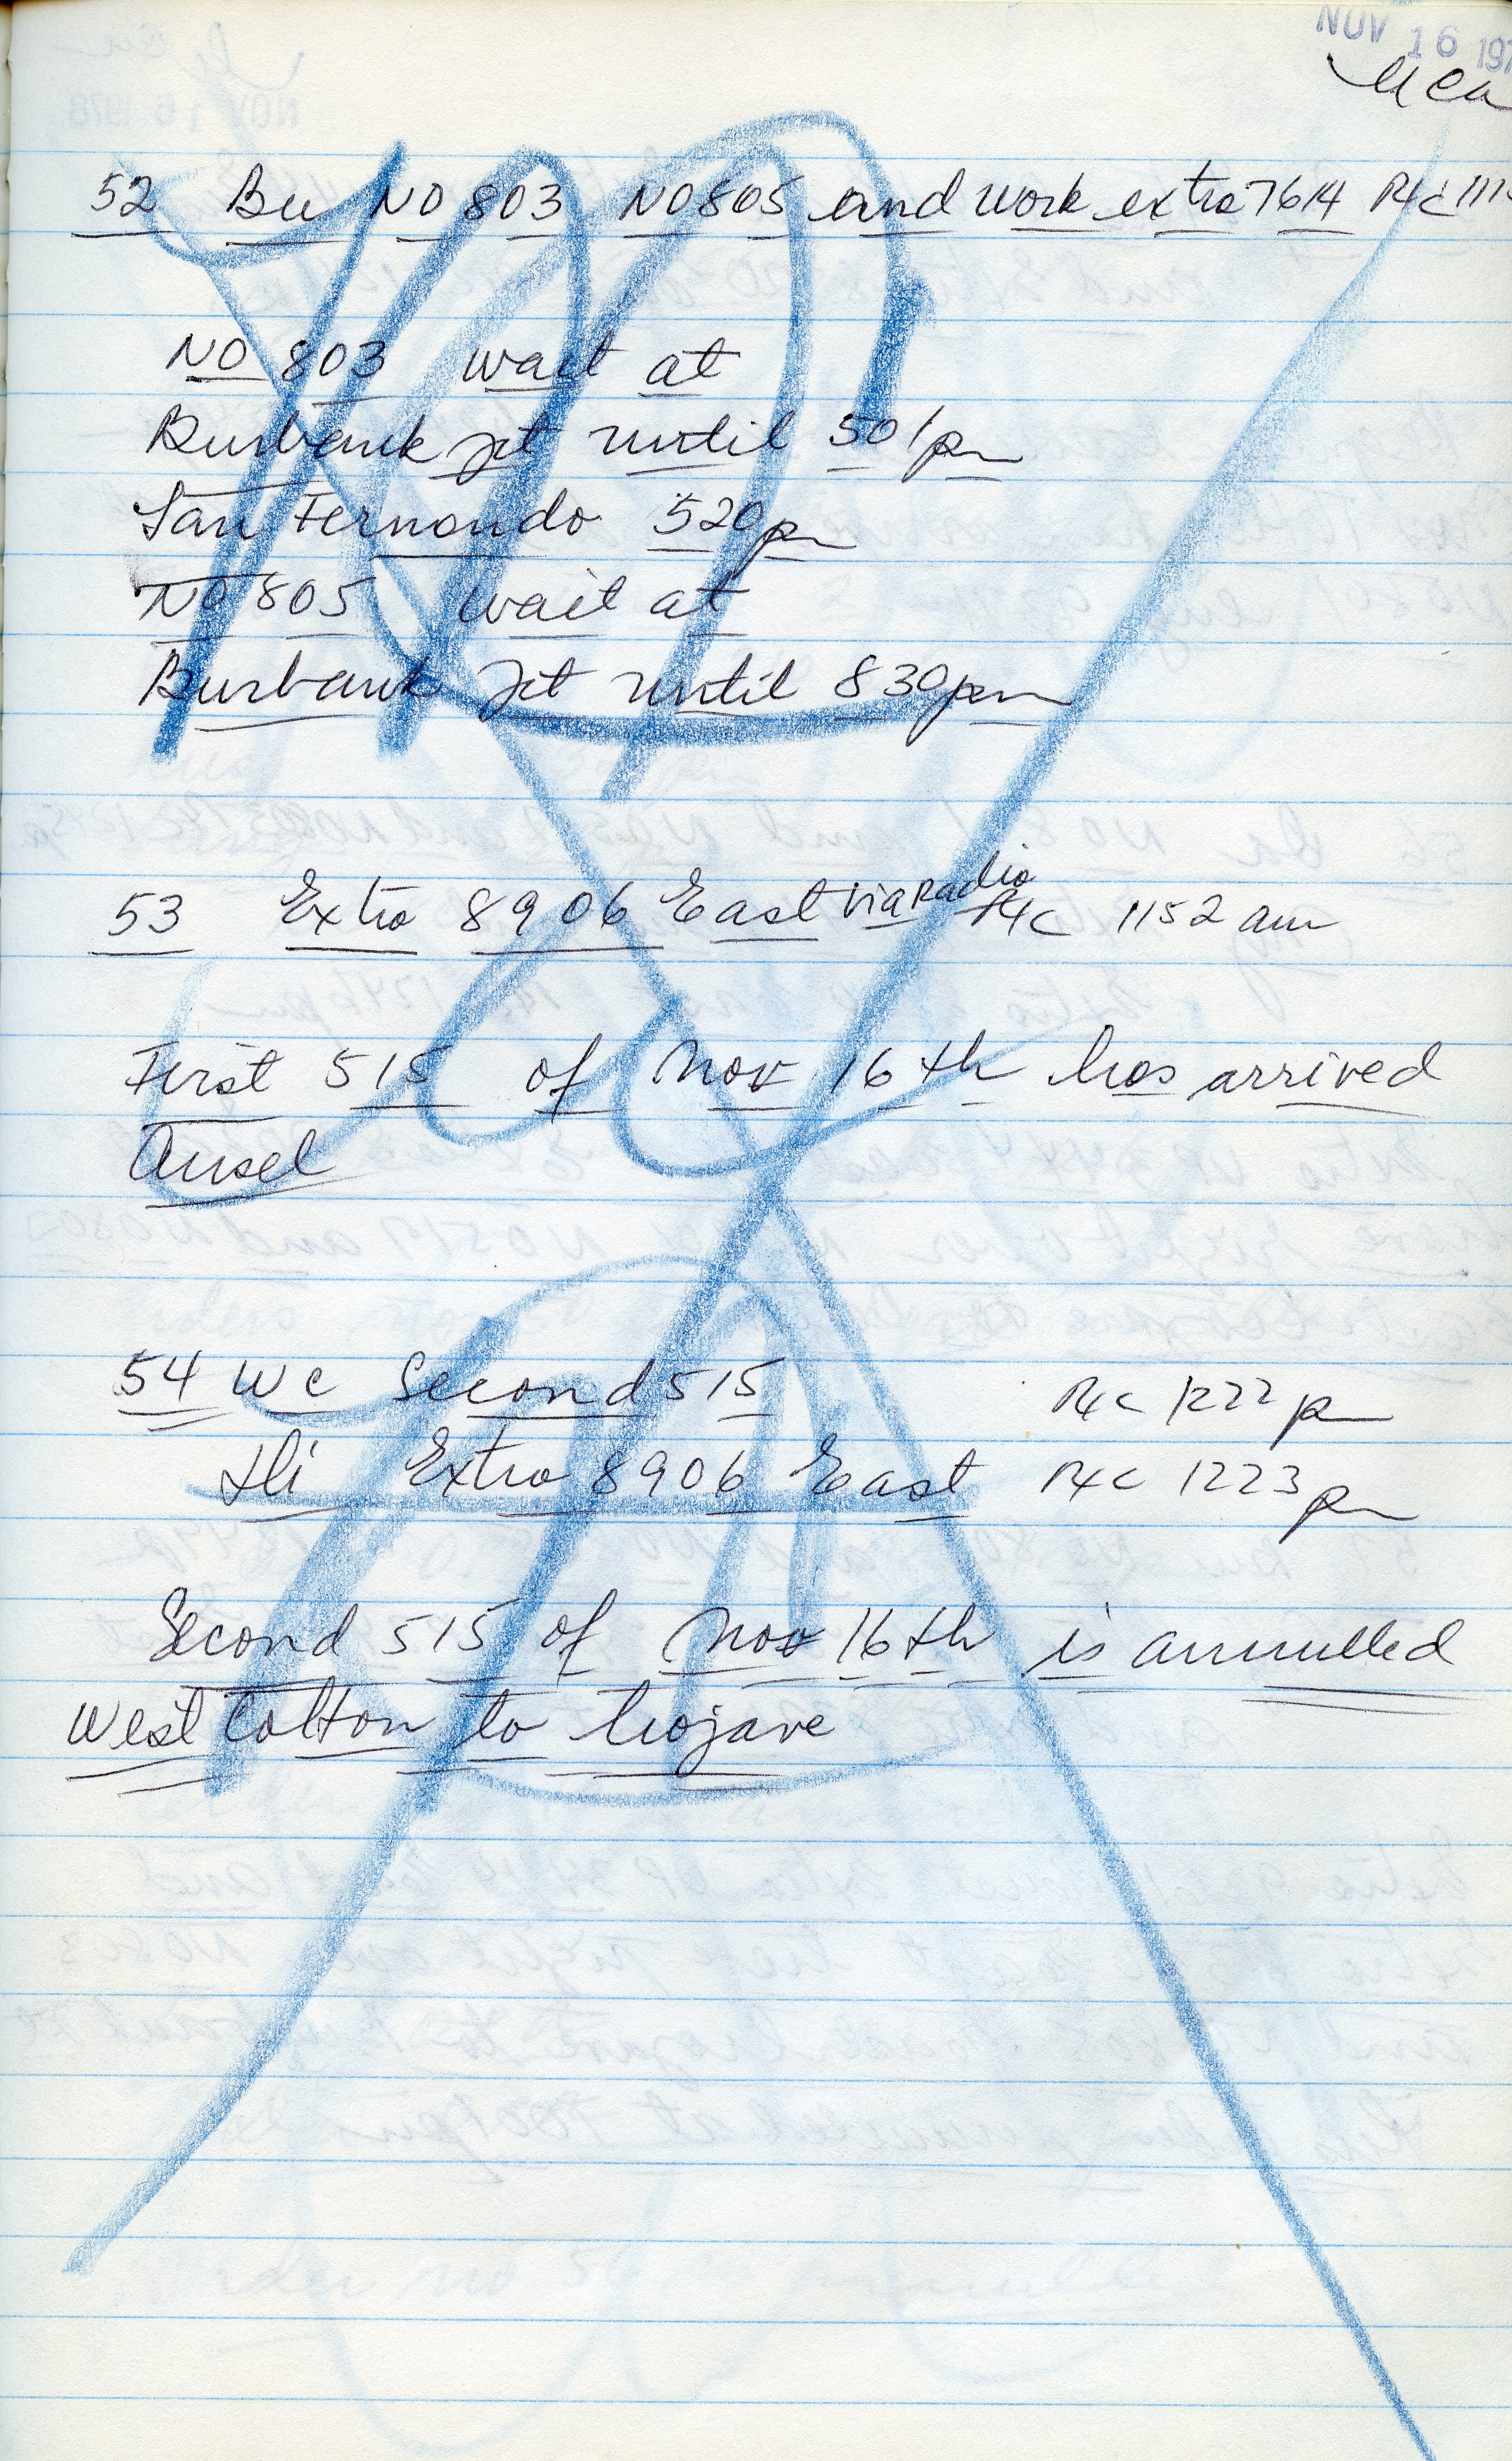 NOV 16 197
52 Bu NO 803 NO 805 and work extra 7614
NO 803 wait at
Burbank Jct until 501pm
San Fernando 520pm
NO 805 wait at
Burbank Jct until 830pm
53 Extra 8906 East via Radio 1152 am
First 515 of Nov 16th has arrived
Ansel
54 WC Second 515 1222 pm
Hi Extra 8906 East 1223 pm
Second 515 of Nov 16th is annulled
West Colton to Mojave